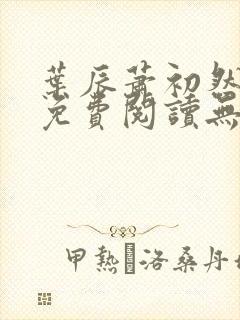 葉辰蕭初然
免費閱讀無
甲熱洛桑丹